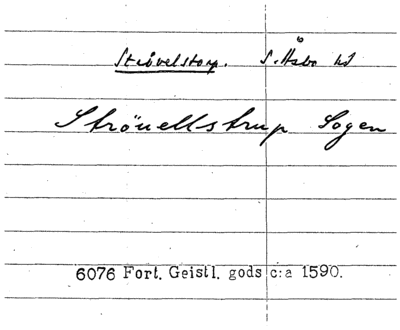 Strövelstorp. S. Åsbo hd
Ströuellstrup Sogen
6076 Fort. Geistl. gods c:a 1590.